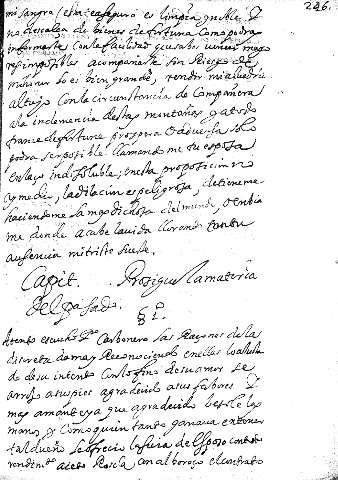 246.
mi sangre, esta seguro es limpia y noble. Y
no descalza de bienes de fortuna como podra
informarse con la facilidad que sabe
imposibles acompañarte sin Riesgo de
mi honor no es bien grande, rendir mi alvedrio
al tuyo con la circunstancia de Compañera
a la inclemencia destas montañas y a todo
trance de fortuna prospera o adversa solo
podra ser posible llamando me tu esposa
en laço indisoluble; en esta proposicion no
ay medio, la dilacion es peligrosa, detieneme
haciendome la mas dichosa del mundo, o embia
me donde acabe la vida llorando en tu
ausencia mi triste suerte.
Capit. Prosigue la materia
del pasado.
§ 1.º
Atento escucho Carbonero las Raçones de la
discreta dama y Reconociendo en ellas
de su intento con lo fino de su amor se
arrojo a sus pies agradecido a sus fabores Y
mas amante ya que agradecido besole las
manos y como quien tanto ganava en tener
tal dueño se ofrecio la fe de Esposo con
Roscia con alboroço el contrato